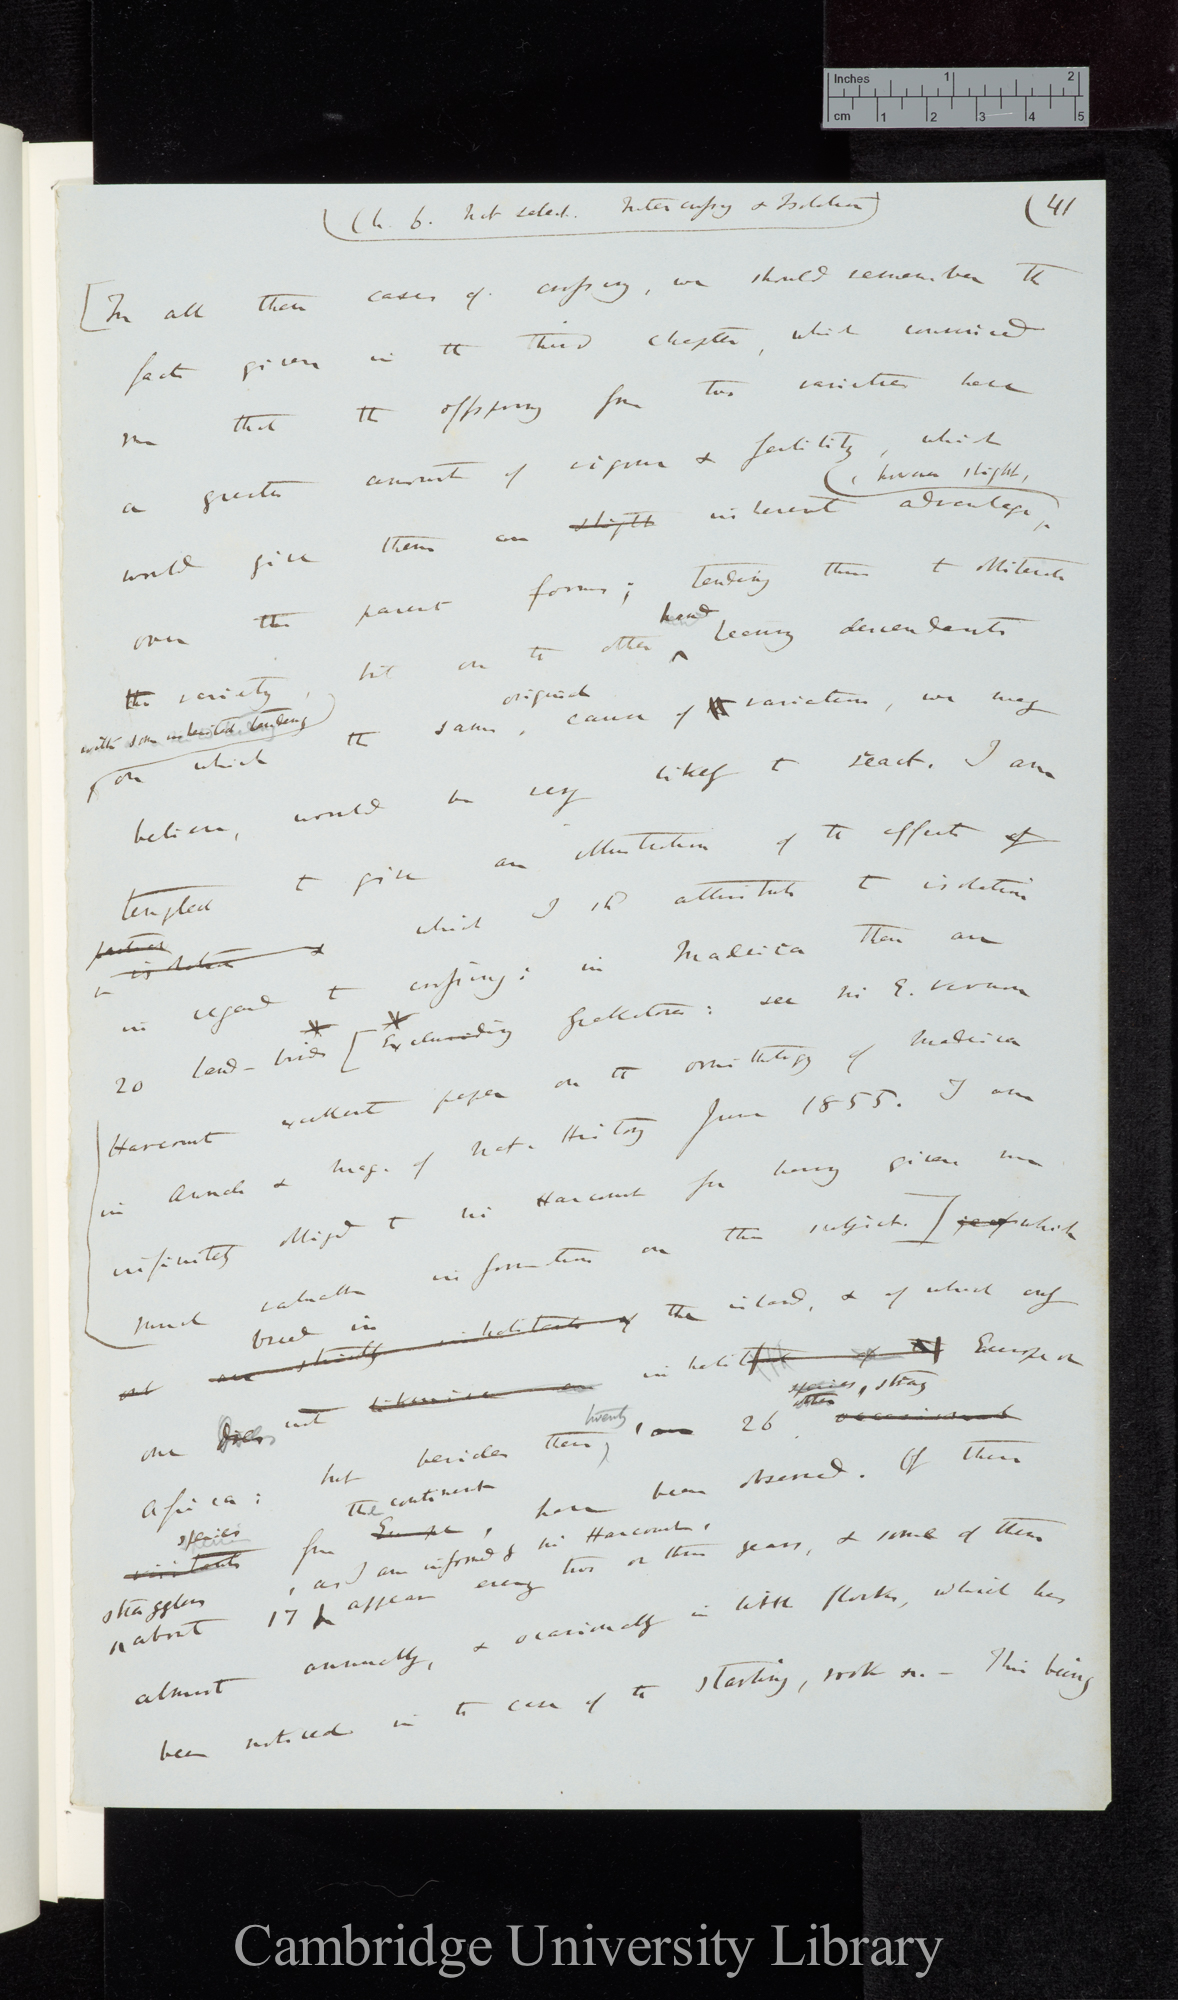 Inches 1 2
cm 1 2 3 4 5
(Ch. 6. Nat select. Intercrossing & Isolation)
(41
[In all these cases of crossing, we should remember the
facts given in the third chapter, which convinced
me that the offspring from two varieties have
a greater amount of vigour & fertility, which
(, however slight,
would give them an slight inherent advantage,
over the parent forms; tending thus to obliterate
the variety, but on the other hand leaving descendants
with some inherited tendency
on which the same, original cause of variation, we may
believe, would be very likely to react. I am
tempted to give an illustration of the effects of
isolation & which I shd attribute to isolation
in regard to crossing: in Madeira there are
20 land-birds * [* Excluding Grallatores: see Mr E. Vernon
Harcourt excellent paper on the ornithology of Madeira
in Annals & Mag. of Nat. History June 1855. I am
infinitely obliged to Mr Harcourt for having given me
much valuable information on this subject.] which
breed in
are strictly inhabitants of the island, & of which only
one does not likewise inhabit Europe or
Africa: but besides these twenty, 26 other species, stray
occasional
visitants species from Europe the continent, have been observed. Of these
stragglers, as I am informed by Mr Harcourt,
about 17 appear every two or three years, & some of them
almost annually, & occasionally in little flocks, which has
been noticed in the case of the starling, rook &c. – This being
Cambridge University Library